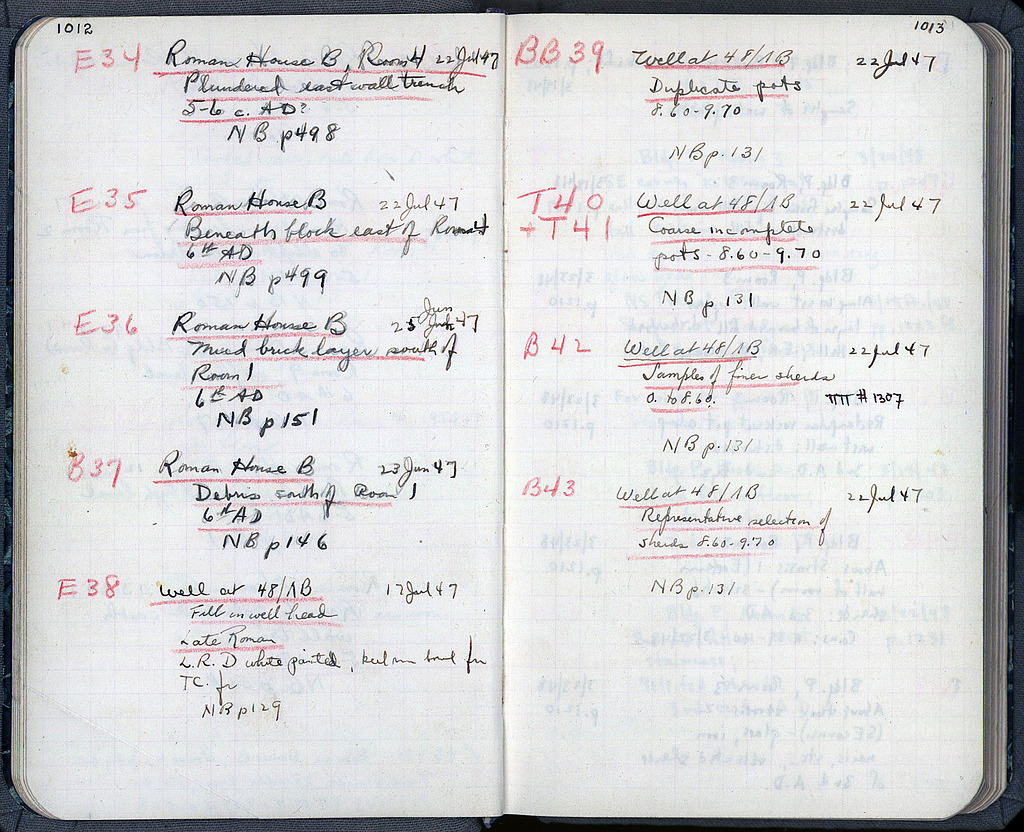 1012
E34 Roman House B, Room 4 22 Jul 47
Plundered east wall trench
5-6 c. AD?
NB p 498
E35 Roman House B 22 Jul 47
Beneath block east of Room 4
6th AD
NB p 499
E36 Roman House B 25 Jun 47
Mud brick layer south of
Room 1
6th AD
NB p 151
B37 Roman House B 23 Jun 47
Debris south of Room 1
6th AD
NB p 146
E38 Well at 48/ΛB 17 Jul 47
Fill in well head
Late Roman
L.R. D white painted, bowl fr
TC. fr
NB p 129
1013
BB 39 Well at 48/ΛB 22 Jul 47
Duplicate pots
8.60-9.70
NB p. 131
T40 Well at 48/ΛB 22 Jul 47
+ T41 Coarse incomplete
pots - 8.60-9.70
NB p 131
B42 Well at 48/ΛB 22 Jul 47
Samples of finer sherds
0. to 8.60. TT # 1307
NB p. 131
B43 Well at 48/ΛB 22 Jul 47
Representative selection of
sherds 8.60-9.70
NB p. 131